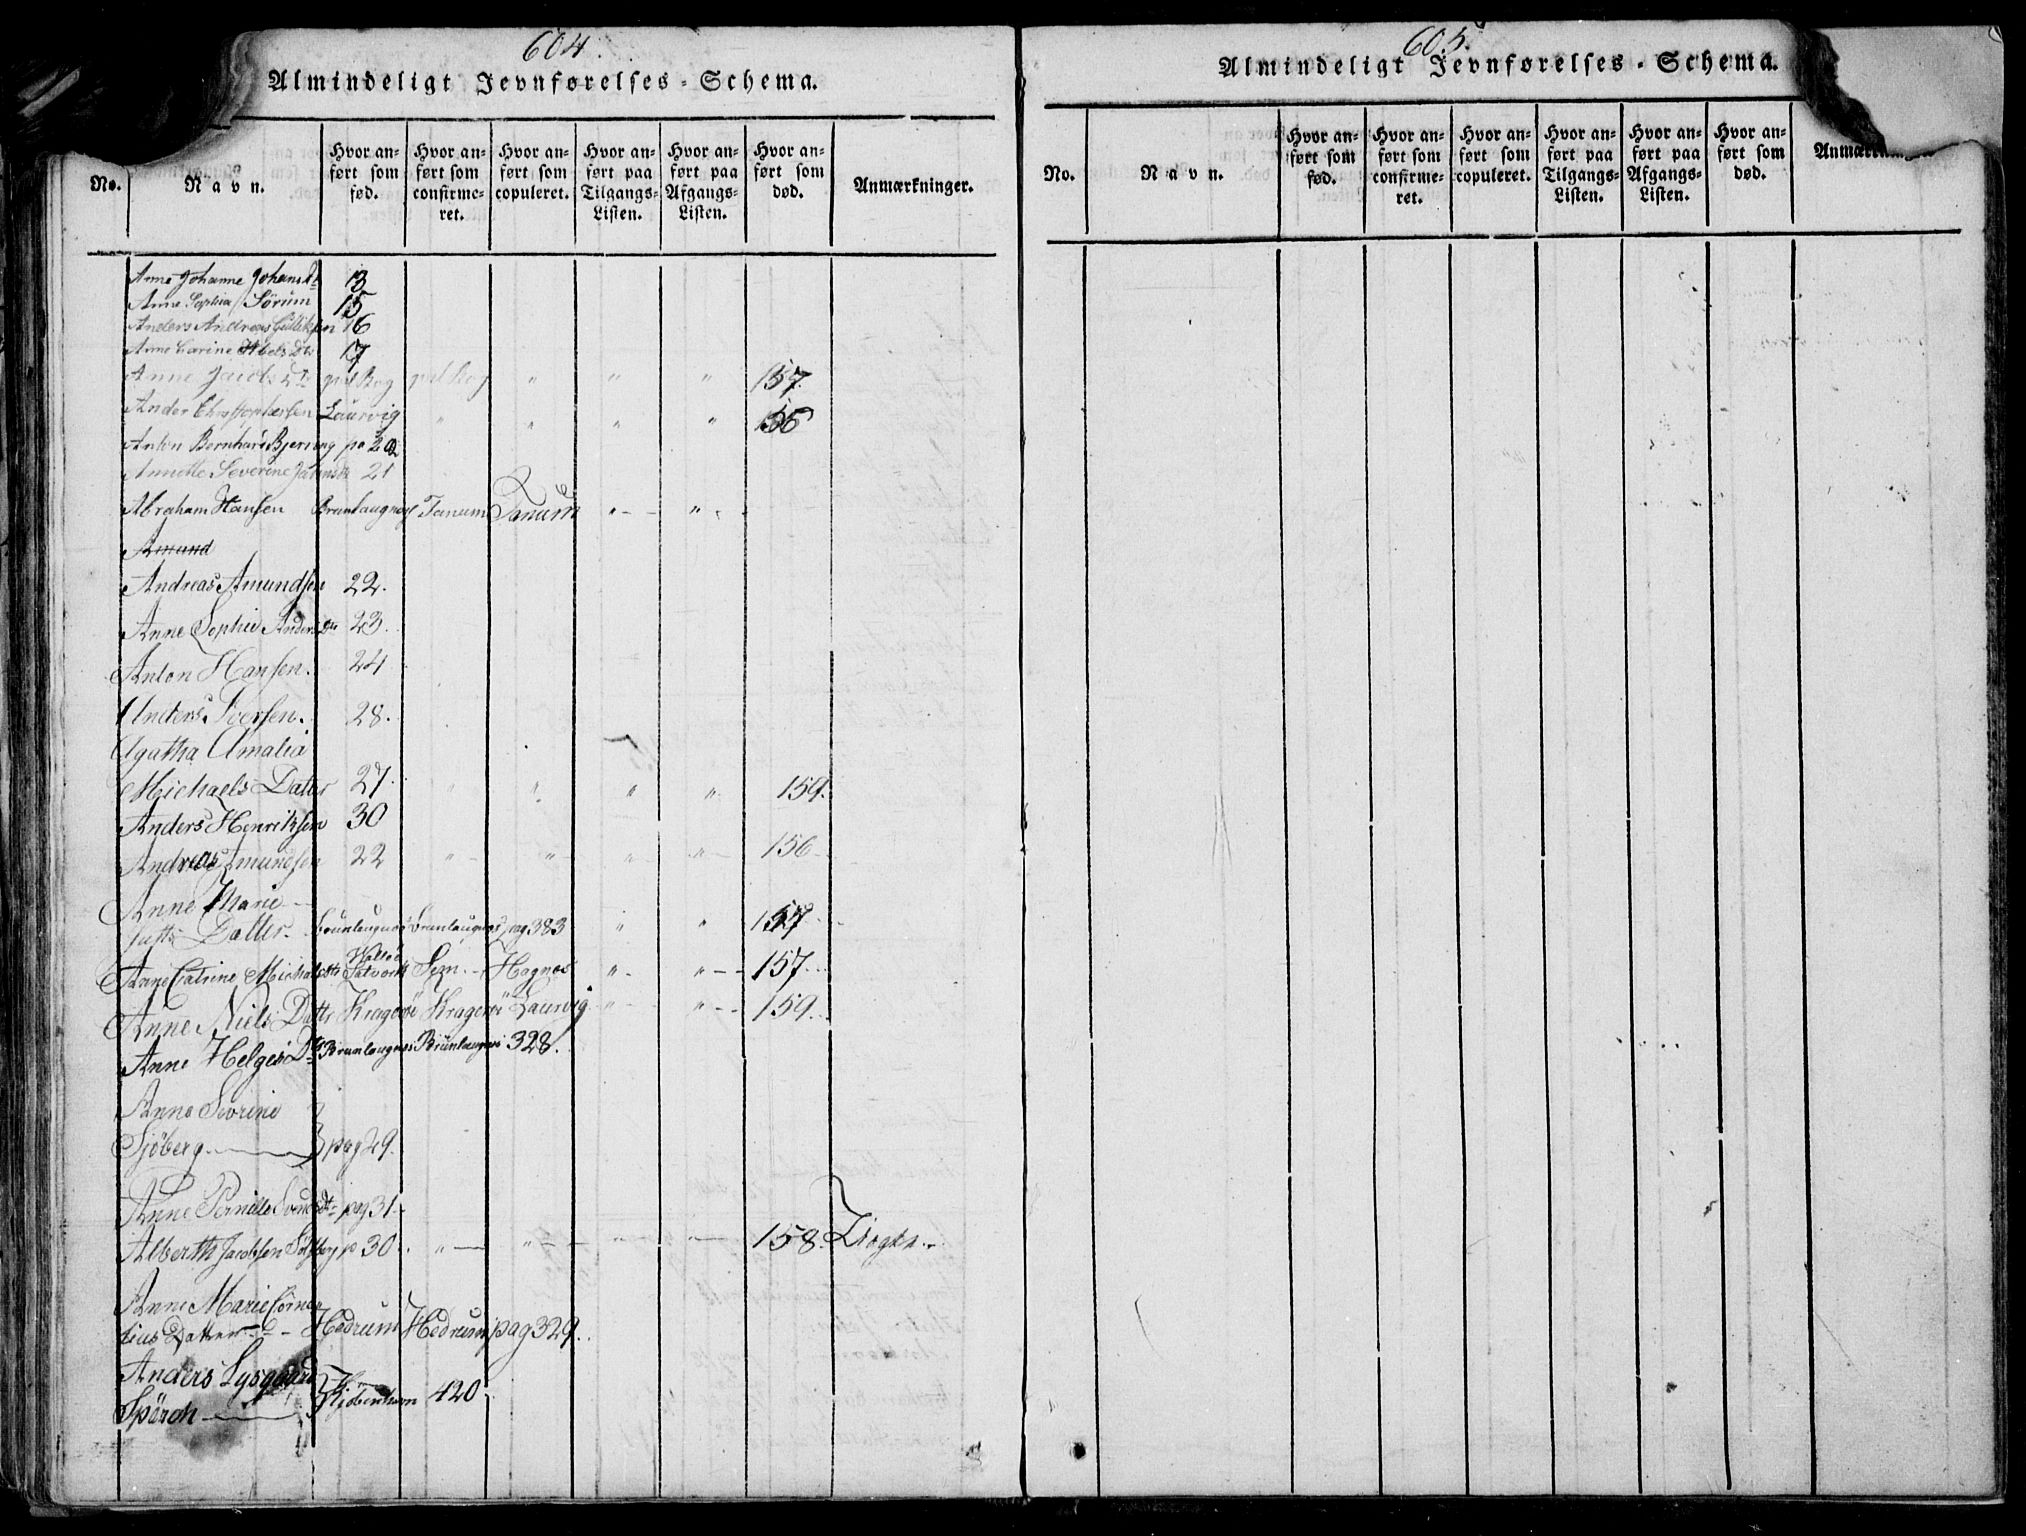 604.
Almindeligt Jevnførelses-Schema.
No. Navn. Hvor anført som fød. Hvor anført som confirmeret. Hvor anført som copuleret. Hvor anført paa Tilgangs-Listen. Hvor anført paa Afgangs-Listen. Hvor anført som død. Anmærkninger.
Anne Johanne Johansdt 13
Anne Sophia Sörum 15
Anders Andreas Gulliksen 16
Anne Carine Abels Dtr 17
Anne " " " 157.
Anders Christophersen Laurvig " " " " 156
Anton Bernhard Bjerring pa 20
Annette Severine 21
Abraham Hansen Brunlaugnæs Tanum Tanum " - - " -
Amund
Andreas Amundsen 22.
Anne Sophie Anders Dtr 23.
Anton Hansen. 24
Anders Iversen. 28.
Agatha Amalia
Michaels Datter 27. " " " " 159.
Anders Henriksen 30
Andreas Amundsen 22 " " " " 156
Anne Marie
Justs Datter. Brunlaugnæs Brunlaugnæs pag 383 " " 157
Anne Catrine Michelsdtr Sem. Hagnes " - " - - 157.
Anne Niels Dattr Krageröe Krageröe Laurvig " - " - - 159.
Anne Helges Dtr Brunlaugnes Brunlaugnes 328.
Anne Sevrine
Sjöberg pag 29.
Anne Pernille Svends Dtr pag 31
Alberth Jacobsen Solberg p 30. " " " " 158.
Anne Marie Corne-
lius Datter Hedrum Hedrum pag 329.
Anders Lysgaard
Spärch Kjöbenhavn 420.
605.
Almindeligt Jevnførelses-Schema.
No. Navn. Hvor anført som fød. Hvor anført som confirmeret. Hvor anført som copuleret. Hvor anført paa Tilgangs-Listen. Hvor anført paa Afgangs-Listen. Hvor anført som død. Anmærkninger